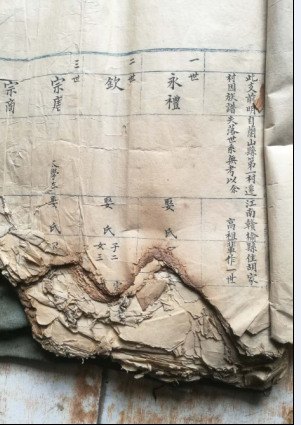 此支前明自蘭山縣第一村遷江南贛榆縣住胡家
村因族譜失落世系無考以余
高祖輩作一世
一世
永禮
娶氏
二世
欽
娶氏
子二
女三
三世
宗唐
娶氏
宗商